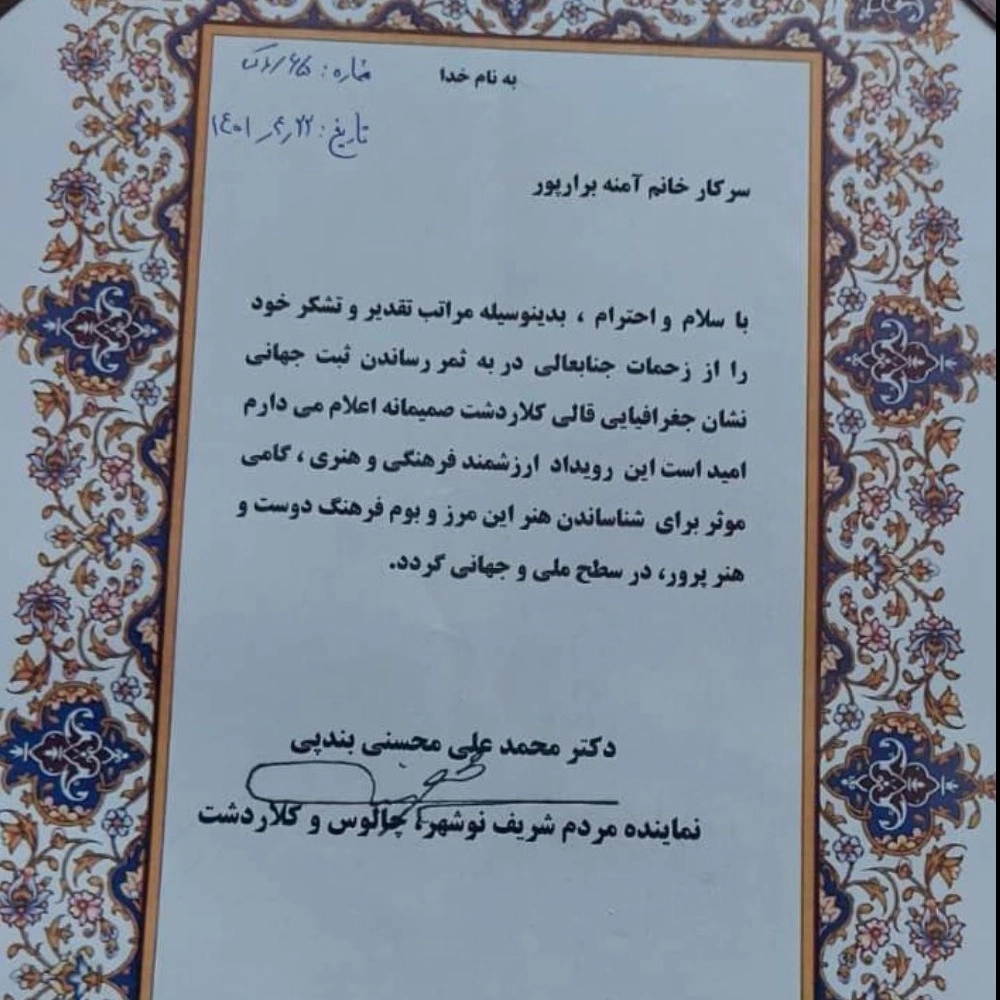 به نام خدا
شماره: ۶۵/
تاریخ: ۱۴۰۱
سرکار خانم آمنه برارپور
با سلام و احترام ، بدینوسیله مراتب تقدیر و تشکر خود
را از زحمات جنابعالی در به ثمر رساندن ثبت جهانی
نشان جغرافیایی قالی کلاردشت صمیمانه اعلام می دارم
امید است این رویداد ارزشمند فرهنگی و هنری ، گامی
موثر برای شناساندن هنر این مرز و بوم فرهنگ دوست و
هنر پرور، در سطح ملی و جهانی گردد.
دکتر محمد علی محسنی بندپی
نماینده مردم شریف نوشهر، چالوس و کلاردشت